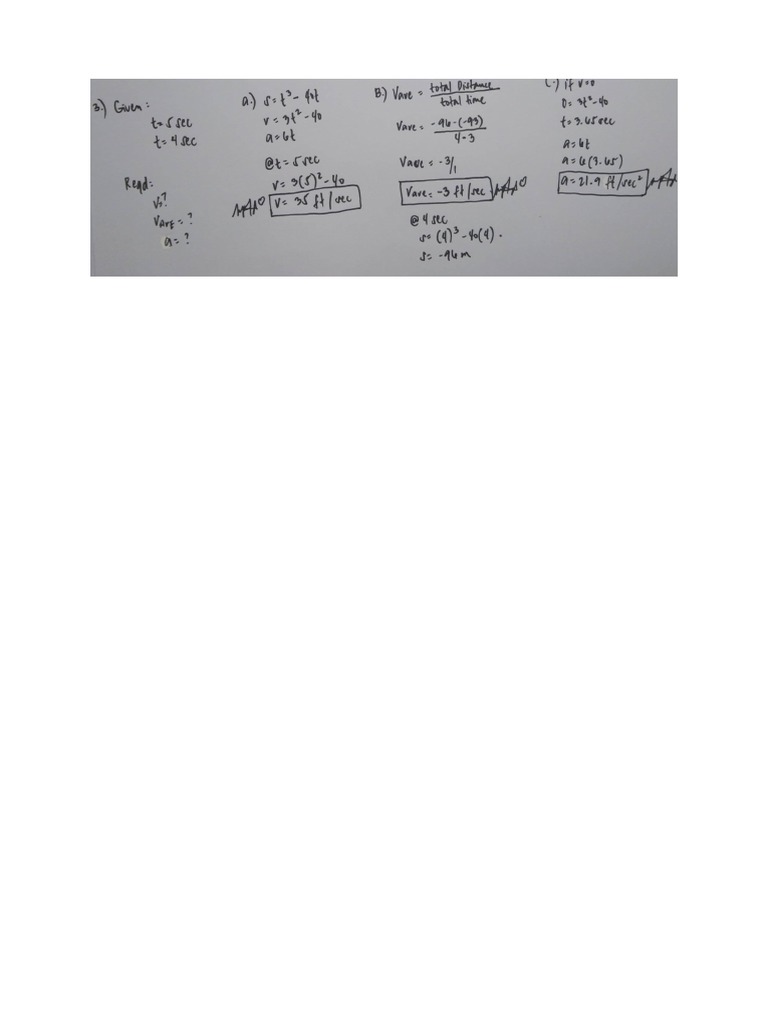 3.) Given:
t=5 sec
t=4 sec
Reqd:
v=?
VAVE = ?
a= ?
a.) s=t³ - 40t
v = 3t² - 40
a=6t
@t=5sec
v= 3(5)² - 40
v= 35 ft/sec
B.) Vave = total Distance
total time
Vave= -96-(-93)
4-3
Vave = -3/1
Vave= -3 ft/sec
@ 4 sec
s= (4)³ - 40(4).
s= -96 m
C.) if v=0
0= 3t²-40
t= 3.65 sec
a= 6t
a= 6(3.65)
a= 21.9 ft/sec²